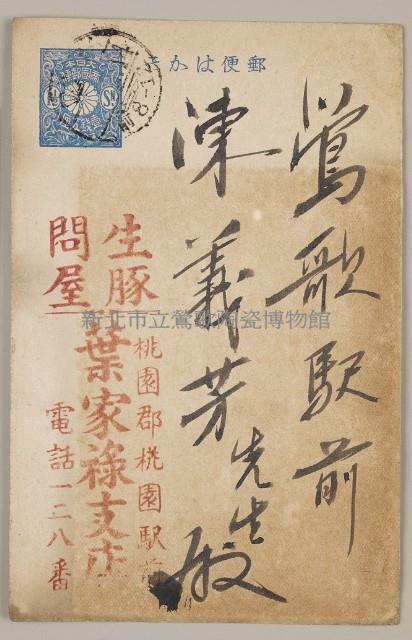 郵便はがき
鶯歌駅前
陳義芳先生殿
生豚
問屋
桃園郡桃園駅前
葉家祿支店
電話一二八番
新北市立鶯歌陶瓷博物館